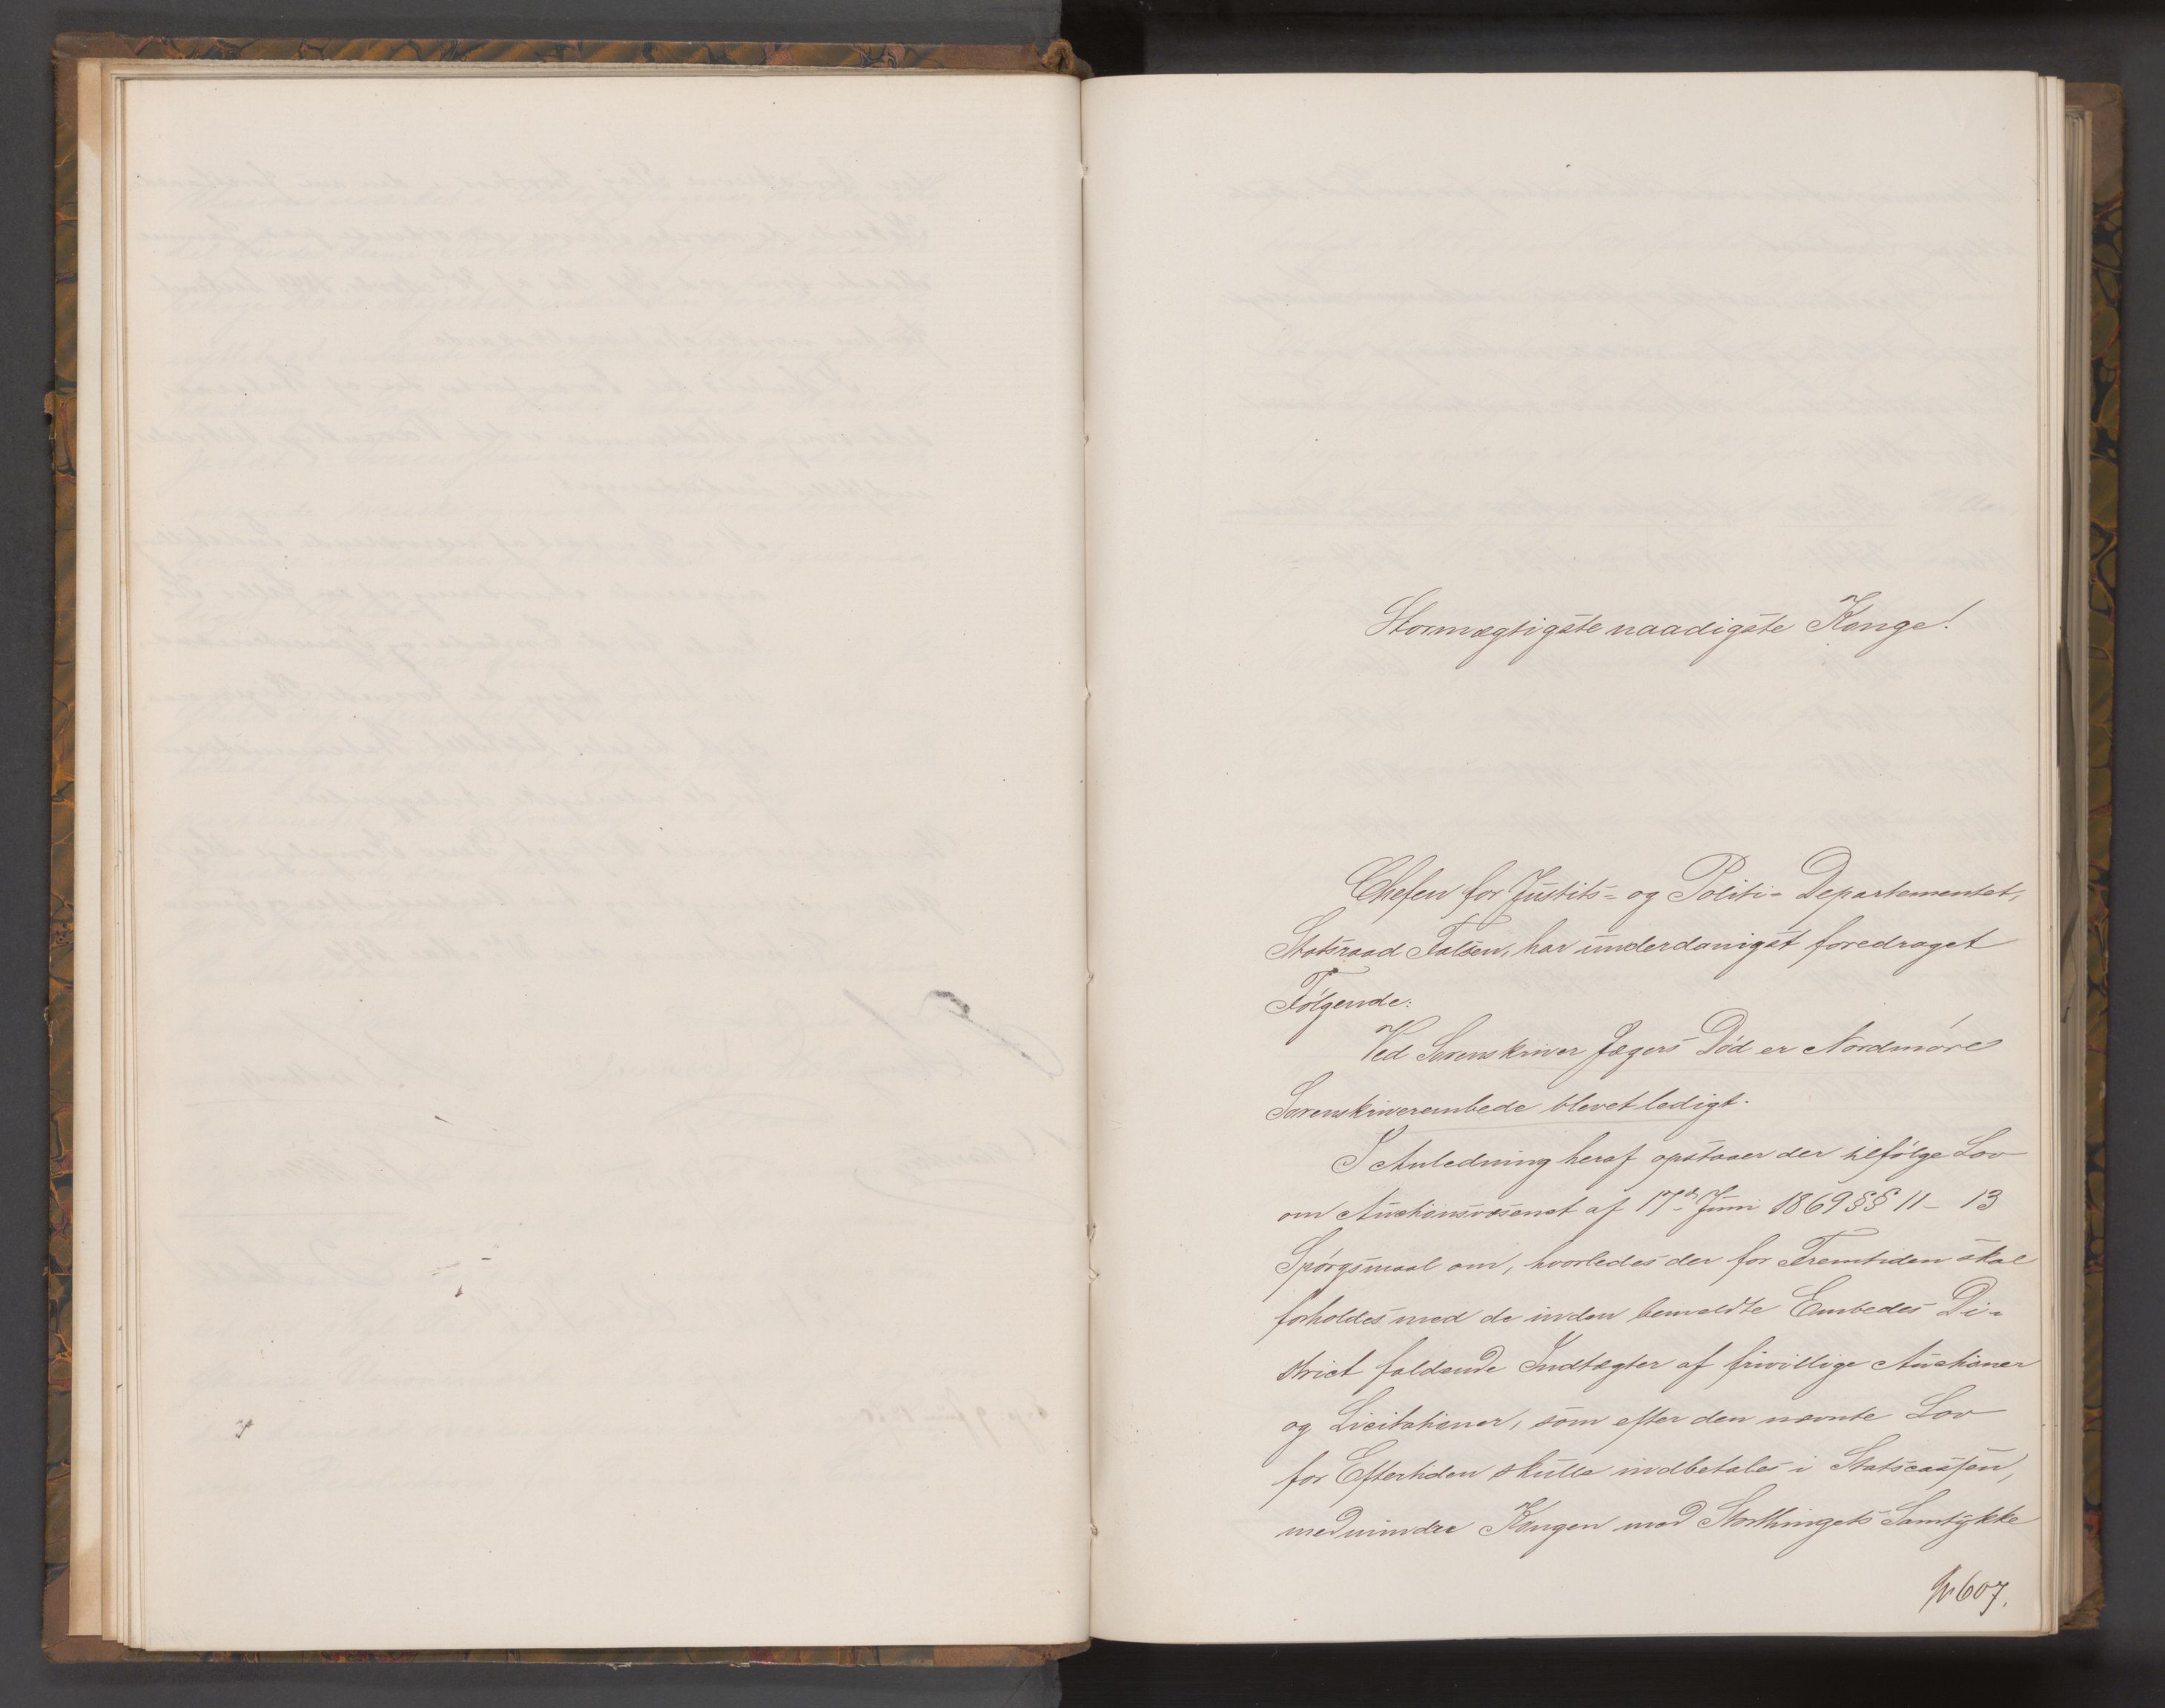 Stormægtigste naadigste Konge!
Chefen for Justits- og Politi-Departementet,
Statsraad Falsen, har underdanigst foredraget
Følgende:
Ved Sorenskriver Jægers Død er Nordmøre
Sorenskriverembede blevet ledigt.
I Anledning heraf opstaaer der ifølge Lov
om Auctionsvæsenet af 17de Juni 1869 §§ 11-13
Spørgsmaal om, hvorledes der for Fremtiden skal
forholdes med de inden bemeldte Embedes Di-
strict faldende Indtægter af frivillige Auctioner
og Licitationer, som efter den nævnte Lov
for Eftertiden skulle indbetales i Statscassen,
medmindre Kongen med Storthingets Samtykke
№ 607.